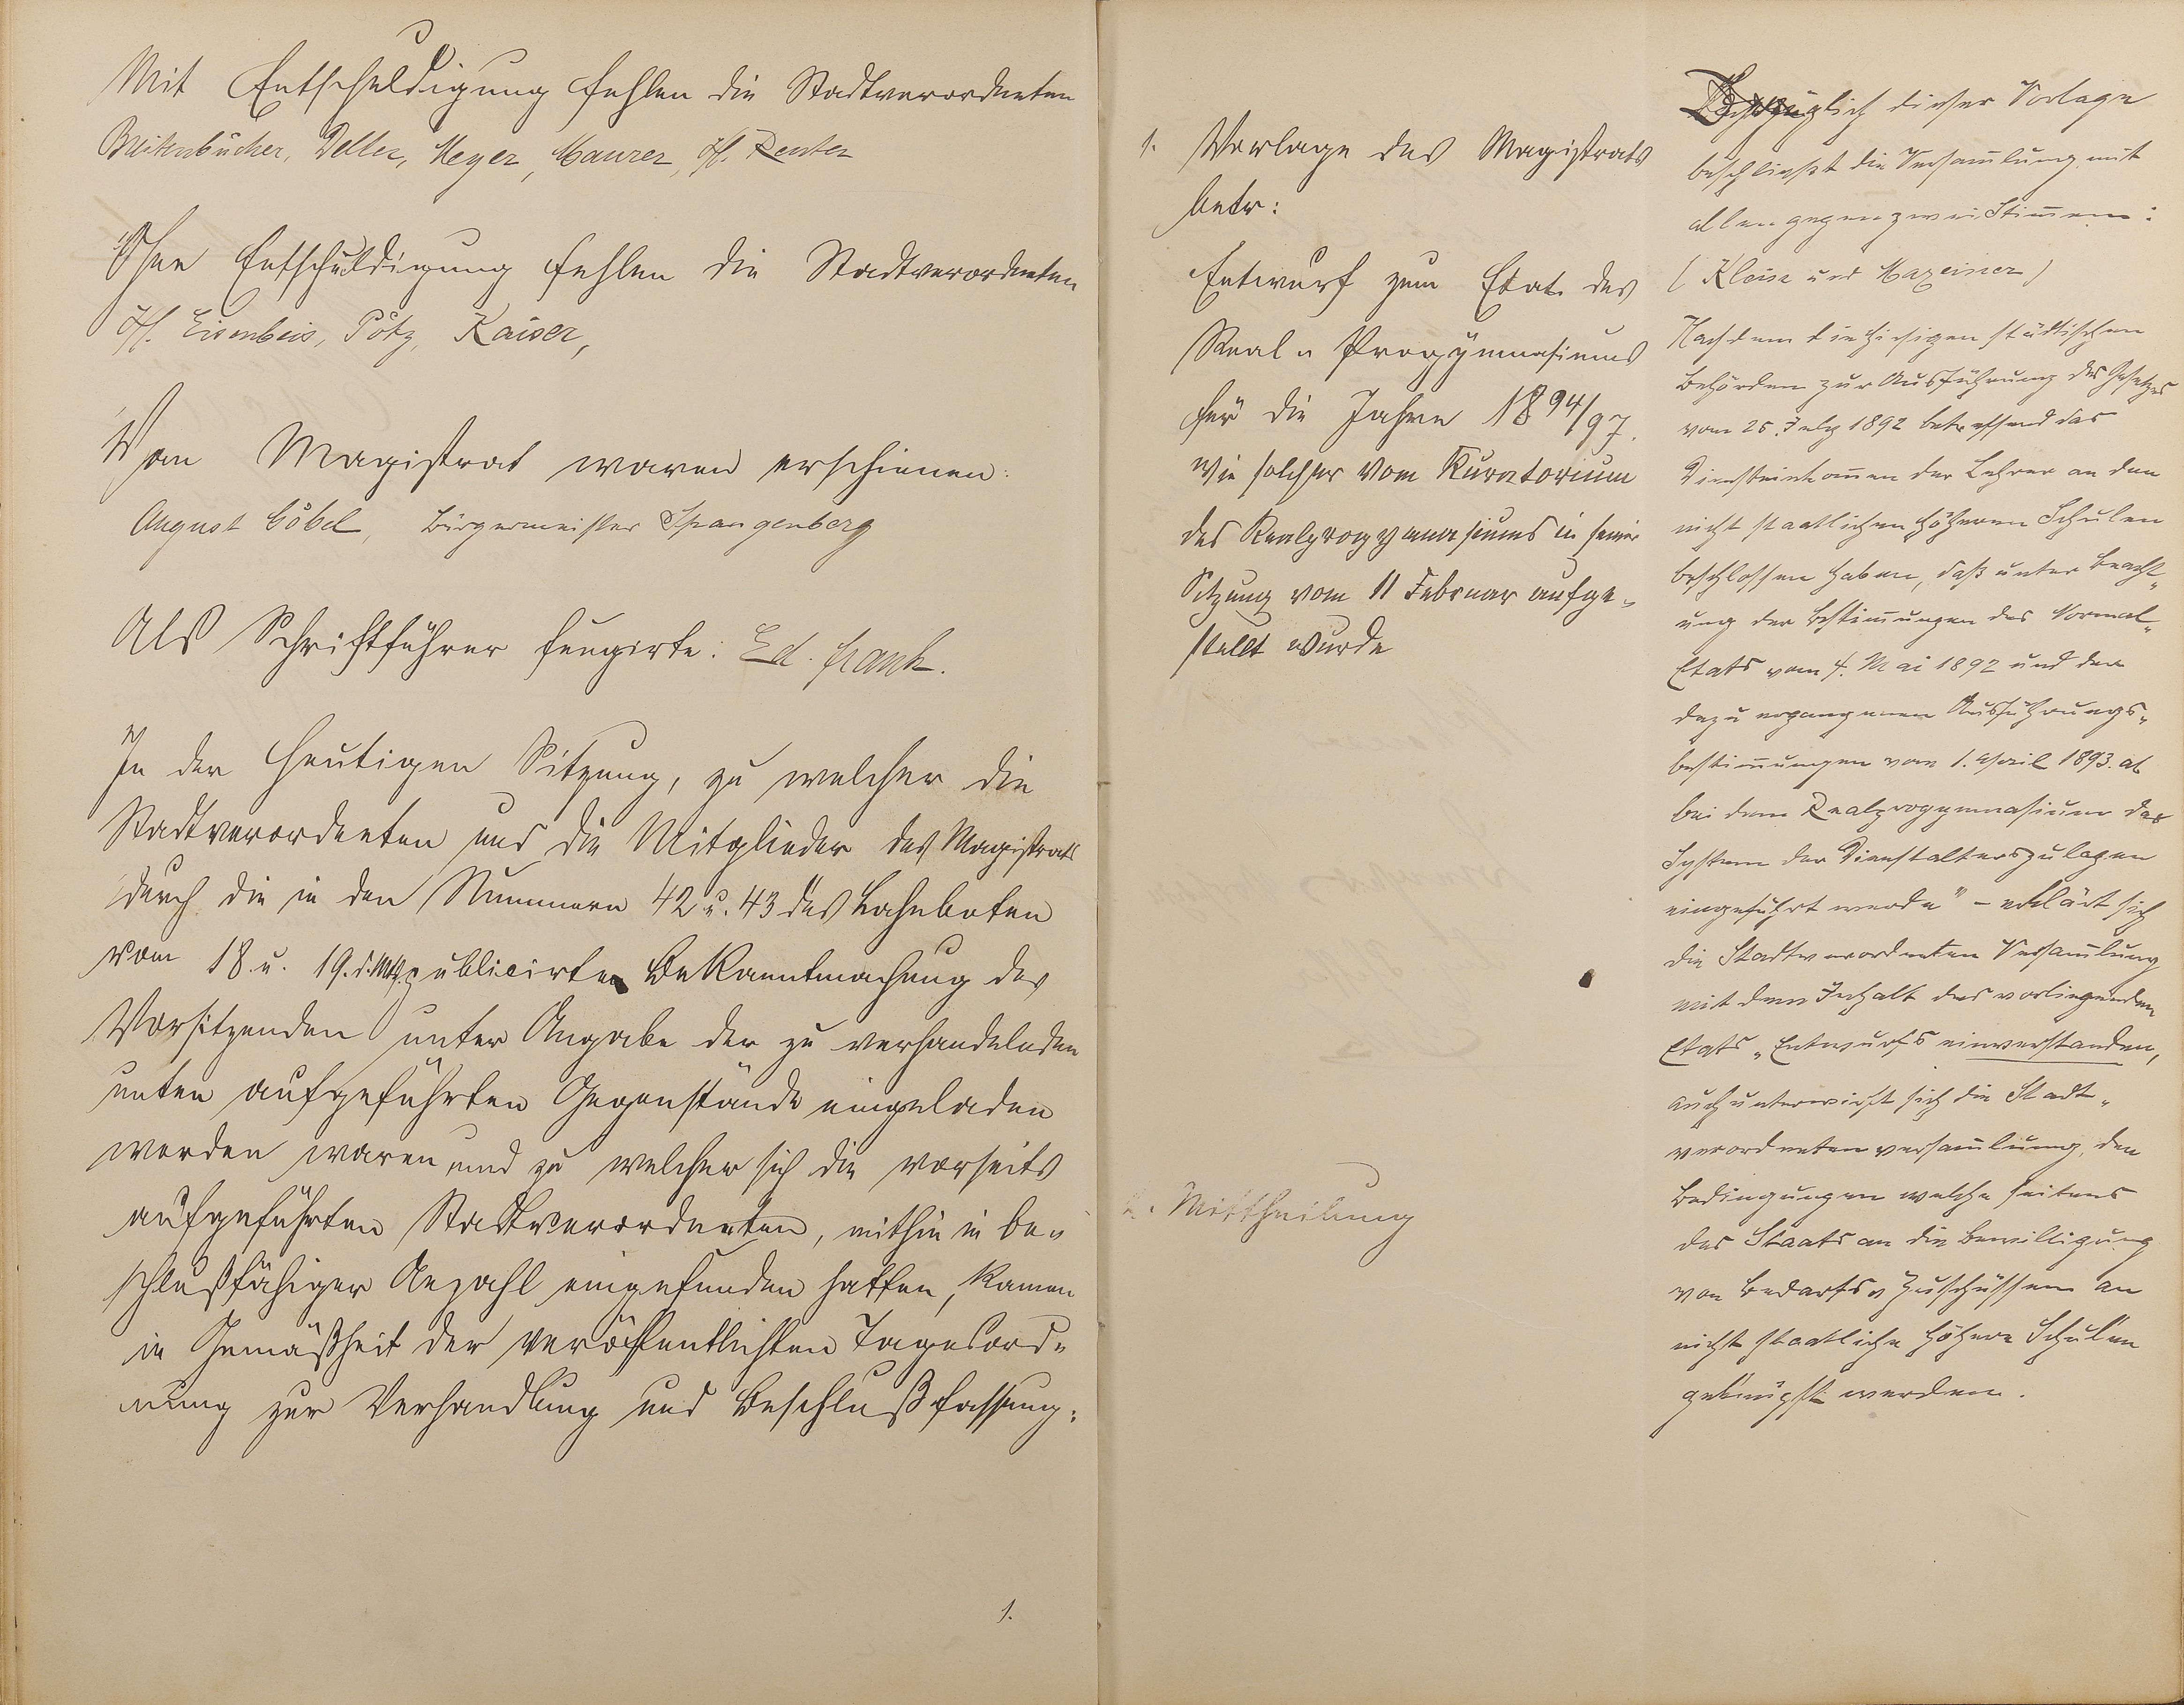 Mit Entschuldigung fehlen die Stadtverordneten
Breitenbücher, Deller, Meyer, Maurer, H. Reuter
Ohne Entschuldigung fehlen die Stadtverordneten
H. Eisenbeis, Pötz, Kaiser,
Vom Magistrat waren erschienen:
August Göbel, Bürgermeister Spangenberg
Als Schriftführer fungirte: Ed. Frank.
In der heutigen Sitzung, zu welcher die
Stadtverordneten und die Mitglieder des Magistrats
durch die in den Nummern 42 u. 43 des Lahnboten
vom 18. u. 19. d. Mts. publicirte Bekanntmachung des
Vorsitzenden unter Angabe der zu verhandelnden
unten aufgeführten Gegenstände eingeladen
worden waren und zu welcher sich die vorseits
aufgeführten Stadtverordneten, mithin in be-
schlußfähiger Anzahl eingefunden hatten, kamen
in Gemäßheit der veröffentlichten Tagesord-
nung zur Verhandlung und Beschlußfassung:
1.
1. Vorlage des Magistrats
betr:
Entwurf zum Etat des
Real- Progymnasiums
für die Jahre 1894/97.
wie solcher vom Kuratorium
des Realprogymnasiums in seiner
Sitzung vom 11 Februar aufge-
stellt wurde
2. Mittheilung
Bezüglich dieser Vorlage
beschließt die Versam̄lung mit
allen gegen zwei Stim̄en:
(Klein und Maxeiner)
Nachdem die hiesigen städtischen
Behörden zur Ausführung des Gesetzes
vom 25. July 1892 betreffend das
Diensteinkom̄en der Lehrer an den
nicht staatlichen höheren Schulen
beschlossen haben, daß unter Beacht-
ung der Bestim̄ungen des Normal-
Etats vom 4. Mai 1892 und der
dazu ergangenen Ausführungs-
bestim̄ungen vom 1. April 1893. ab
bei dem Realprogymnasium das
System der Dienstalterszulagen
eingeführt werde" - erklärt sich
die Stadtverordneten Versam̄lung
mit dem Inhalt des vorliegenden
Etats-Entwurfs einverstanden,
auch unterwirft sich die Stadt-
verordnetenversam̄lung, den
Bedingungen welche seitens
des Staats an die Bewilligung
von Bedarfs-Zuschüssen an
nicht staatliche höhere Schulen
geknüpft werden.